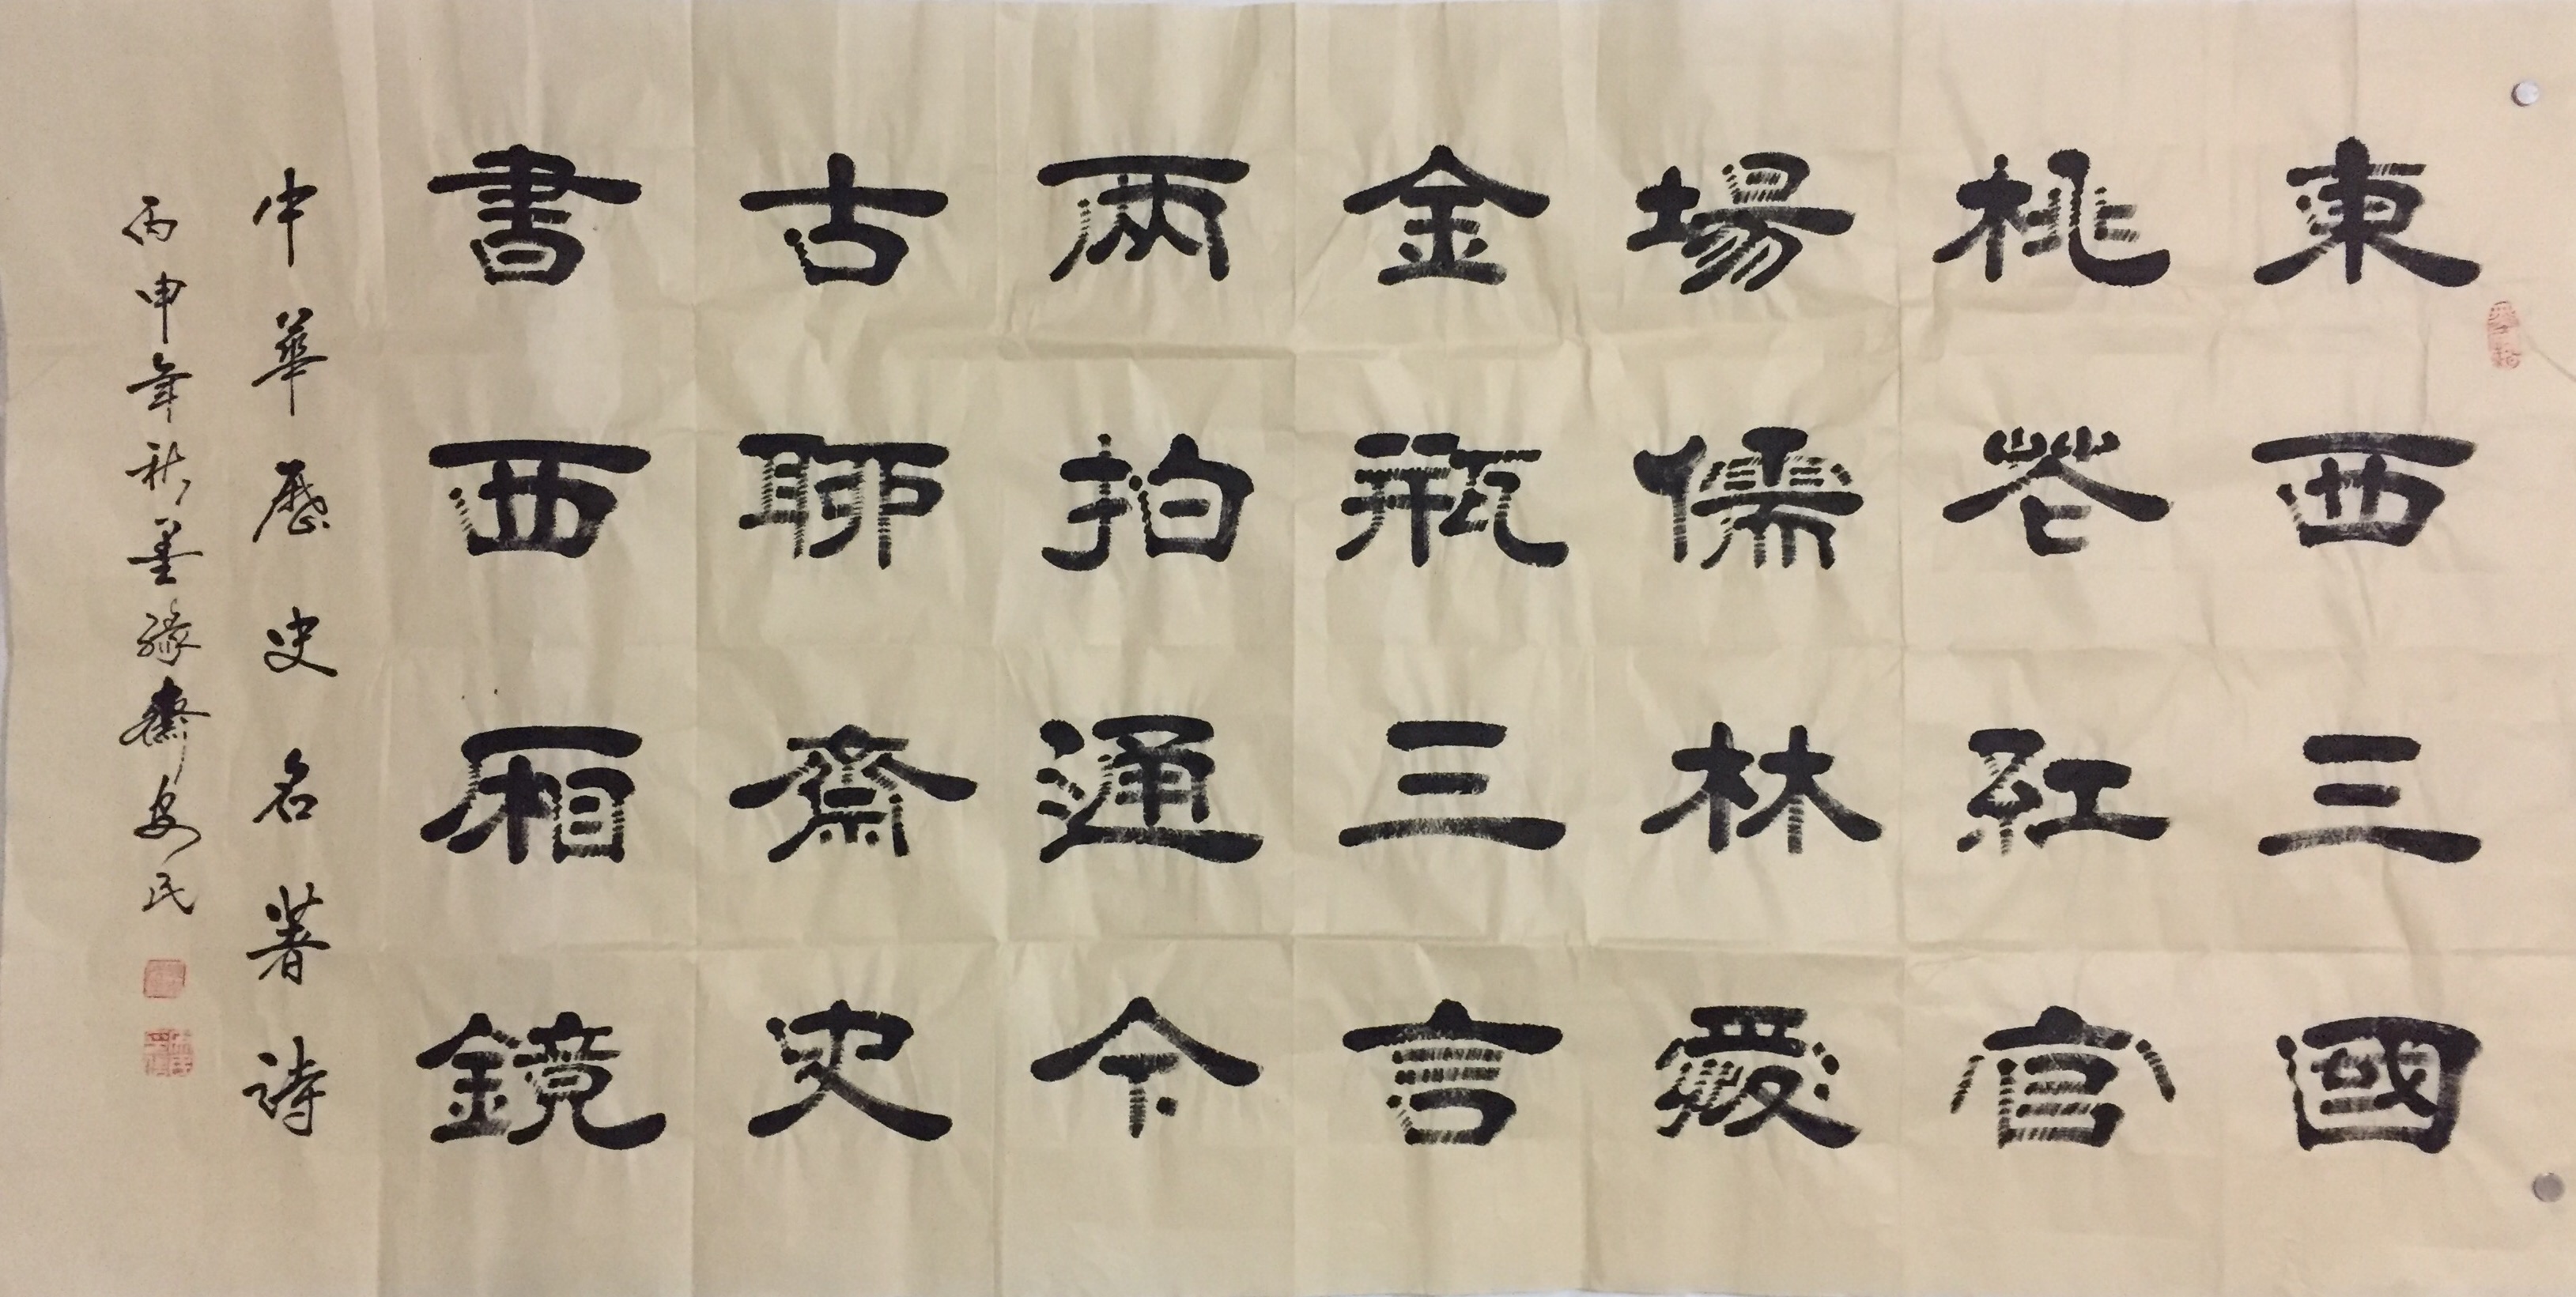 東西三國
桃花紅官
場儒林愛
金瓶三言
兩拍通今
古聊齋史
書西厢鏡
中華歷史名著詩
丙申年秋墨緣齋安民